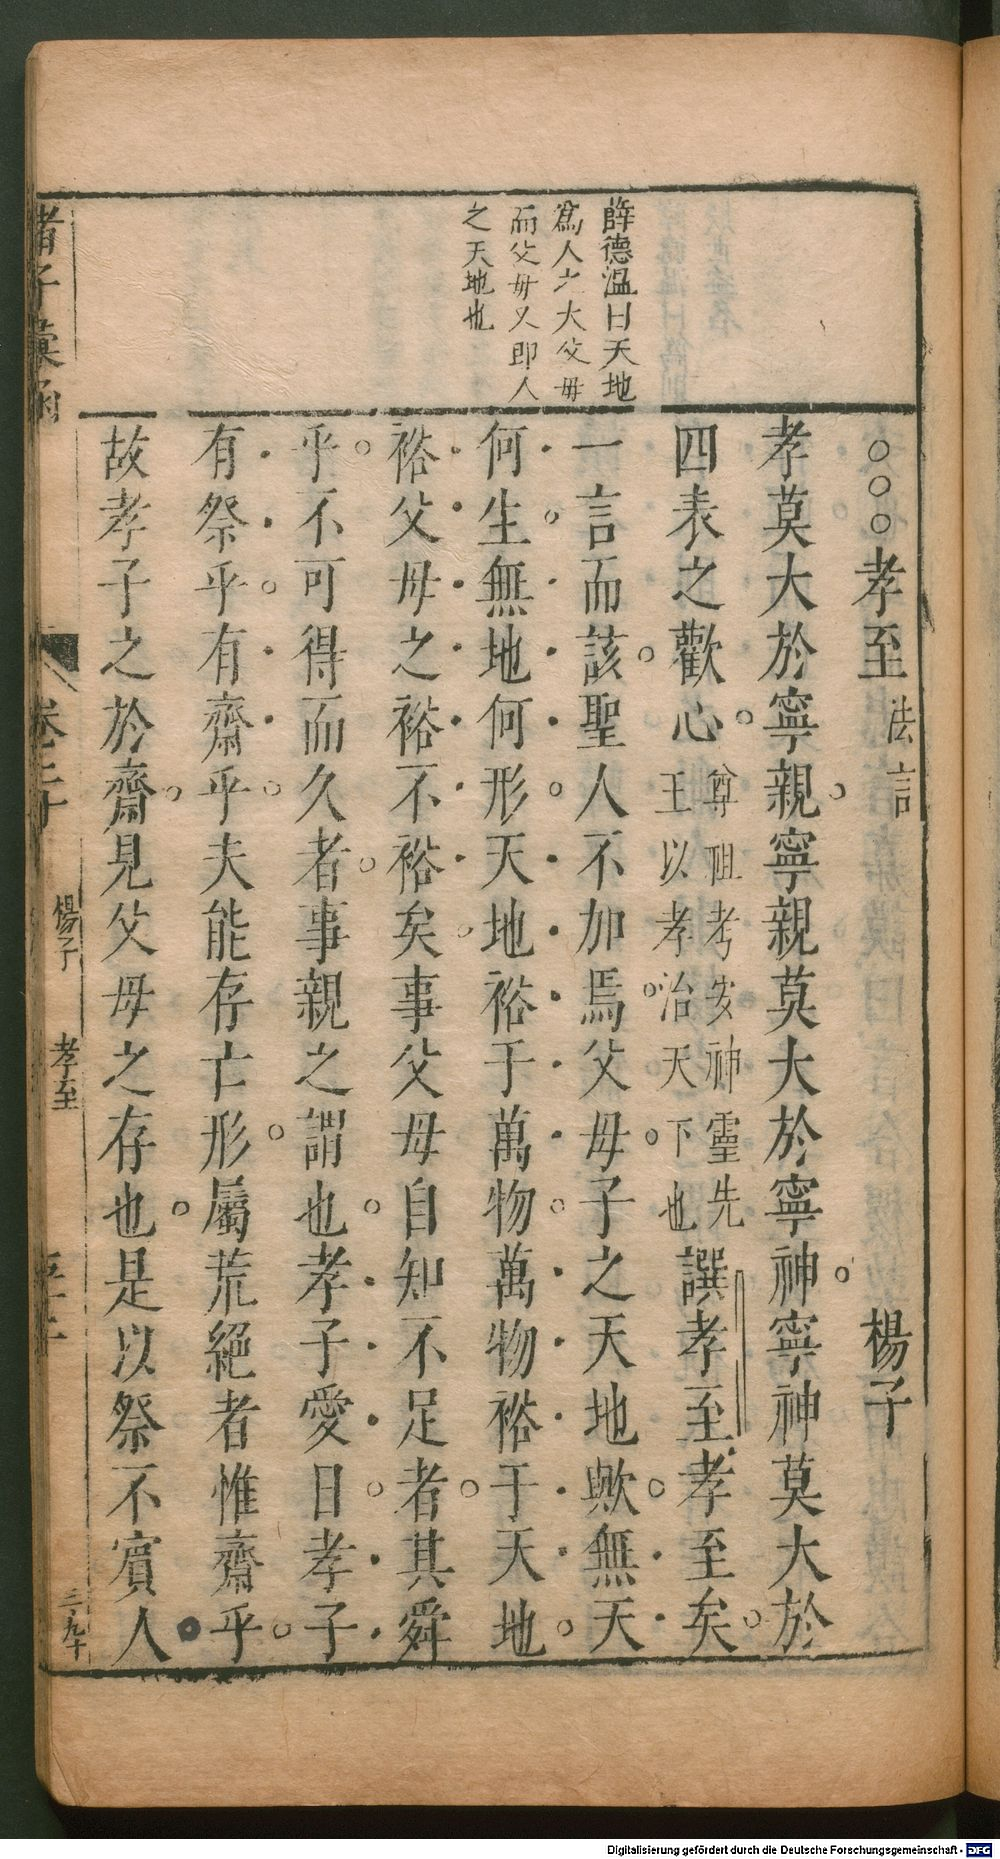 薛德溫曰天地
為人之大父母
而父母又即人
之天地也
○○○孝至法言 楊子
孝莫大於寧親寧親莫大於寧神寧神莫大於
四表之歡心尊祖考安神靈先王以孝治天下也譔孝至孝至矣
一言而該聖人不加焉父母子之天地歟無天
何生無地何形天地裕于萬物萬物裕于天地
裕父母之裕不裕矣事父母自知不足者其舜
乎不可得而久者事親之謂也孝子愛日孝子
有祭乎有齋乎夫能存亡形屬荒絕者惟齋乎
故孝子之於齋見父母之存也是以祭不賓人
諸子彙函
楊子 孝至
三九十
Digitalisierung gefördert durch die Deutsche Forschungsgemeinschaft - DFG